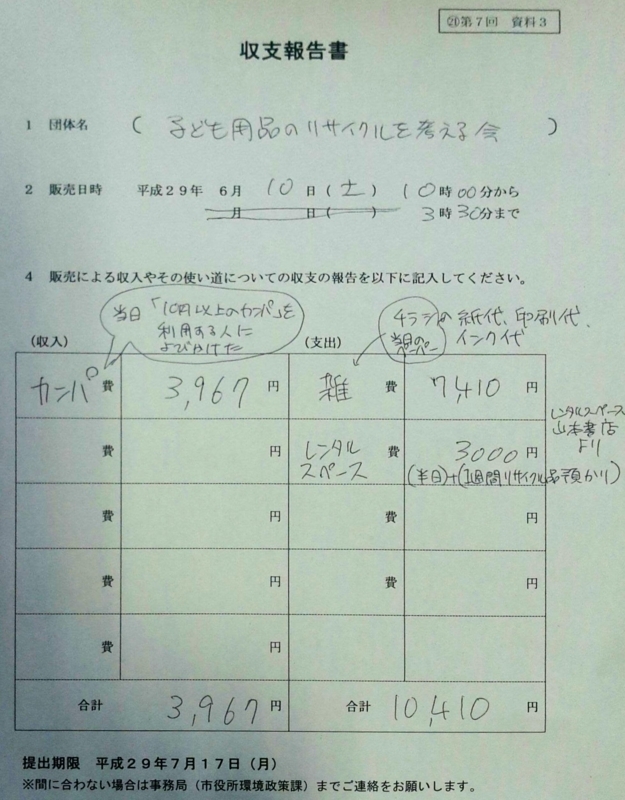 ㉑第7回 資料3
収支報告書
1 団体名 ( 子ども用品のリサイクルを考える会 )
2 販売日時 平成29年 6月 10日(土) 10時00分から
月 日( ) 3時30分まで
4 販売による収入やその使い道についての収支の報告を以下に記入してください。
当日「10円以上のカンパ」を
利用する人に
よびかけた
チラシの紙代、印刷代、
当日のペーパー インク代
(収入) (支出)
カンパ費 3,967円 雑費 7,410円
費 円 レンタルスペース 3000円
(半日)+(1週間リサイクル品預かり)
レンタルスペース
山本書店
より
費 円 費 円
費 円 費 円
費 円
合計 3,967円 合計 10,410円
提出期限 平成29年7月17日(月)
※間に合わない場合は事務局(市役所環境政策課)までご連絡をお願いします。